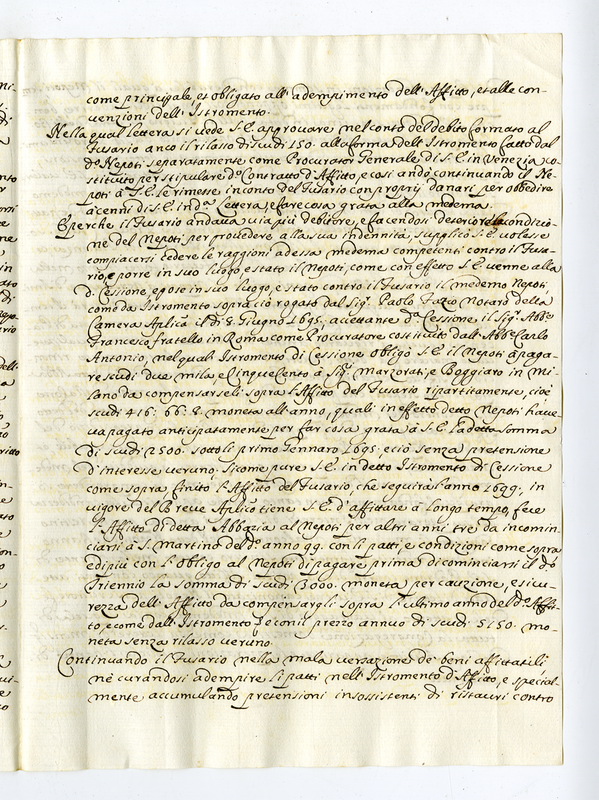 come principale, et obligato all'adempimento dell'Affitto, et alle con-
venzioni dell'Istromento.
Nella qual lettera si vede S.E. approvare nel conto del debito formato al
Fusario anco il rilasso di scudi 150. alla forma dell'Istromento fatto dal
d.º Nepoti separatamente come Procurator Generale di S.E. in Venezia co-
stituito per stipulare d.º Contratto d'Affitto, e così andò continuando il Ne-
poti à S.E. le rimesse in conto del Fusario con proprij danari per obbedire
à cenni di S.E. in d.ª Lettera, e fare cosa grata alla medema.
E perche il Fusario andava via più debitore, e facendosi deteriore la condizio-
ne del Nepoti, per provedere alla sua indennità, supplicò S.E. volesse
compiacersi cedere le raggioni ad essa medema competenti contro il Fusa-
rio, e porre in suo luogo, e stato il Nepoti, come con effetto S.E. venne alla
d.ª Cessione, e pose in suo luogo, e stato contro il Fusario il medemo Nepoti,
come da Istromento sopra ciò rogato dal Sig.r Paolo Fazio Notaro della
Camera Aplica il dì 8. Giugno 1695, accettante d.ª Cessione il Sig.r Abbe
Francesco fratello in Roma come Procuratore costituito dall'Abbe Carlo
Antonio, nel qual Istromento di Cessione obligò S.E. il Nepoti à paga-
re scudi due mila, e Cinquecento à Sig.ri Marzorati, e Poggiaro in Mi-
lano da compensarseli sopra l'Affitto del Fusario ripartitamente, cioè
scudi 416: 66: 8. moneta all'anno, quali in effetto detto Nepoti have-
va pagato anticipatamente per far cosa grata à S.E. la detta somma
di scudi 2500. sotto li primo Gennaro 1695, e ciò senza pretensione
d'interesse veruno. Sicome pure S.E. in detto Istromento di Cessione
come sopra finito l'Affitto del Fusario, che seguirà l'anno 1699. in
vigore del Breve Aplico tiene S.E. d'affittare à longo tempo, fece
l'Affitto di detta Abbazia al Nepoti per altri anni tre da incomin-
ciarsi à S. Martino del d.º anno 99. con li patti, e condizioni come sopra
e di più con l'obligo al Nepoti di pagare prima di cominciarsi il d.º
Triennio la somma di scudi 3000. moneta per cauzione, e sicu-
rezza dell'Affitto da compensargli sopra l'ultimo anno del d.º Affit-
to, e come dall'Istromento, e con il prezzo annuo di scudi 5150. mo-
neta senza rilasso veruno.
Continuando il Fusario nella mala versazione de beni affittatili
nè curandosi adempire li patti nell'Istromento d'Affitto, e special-
mente accumulando pretensioni insossistenti di ristauri contro